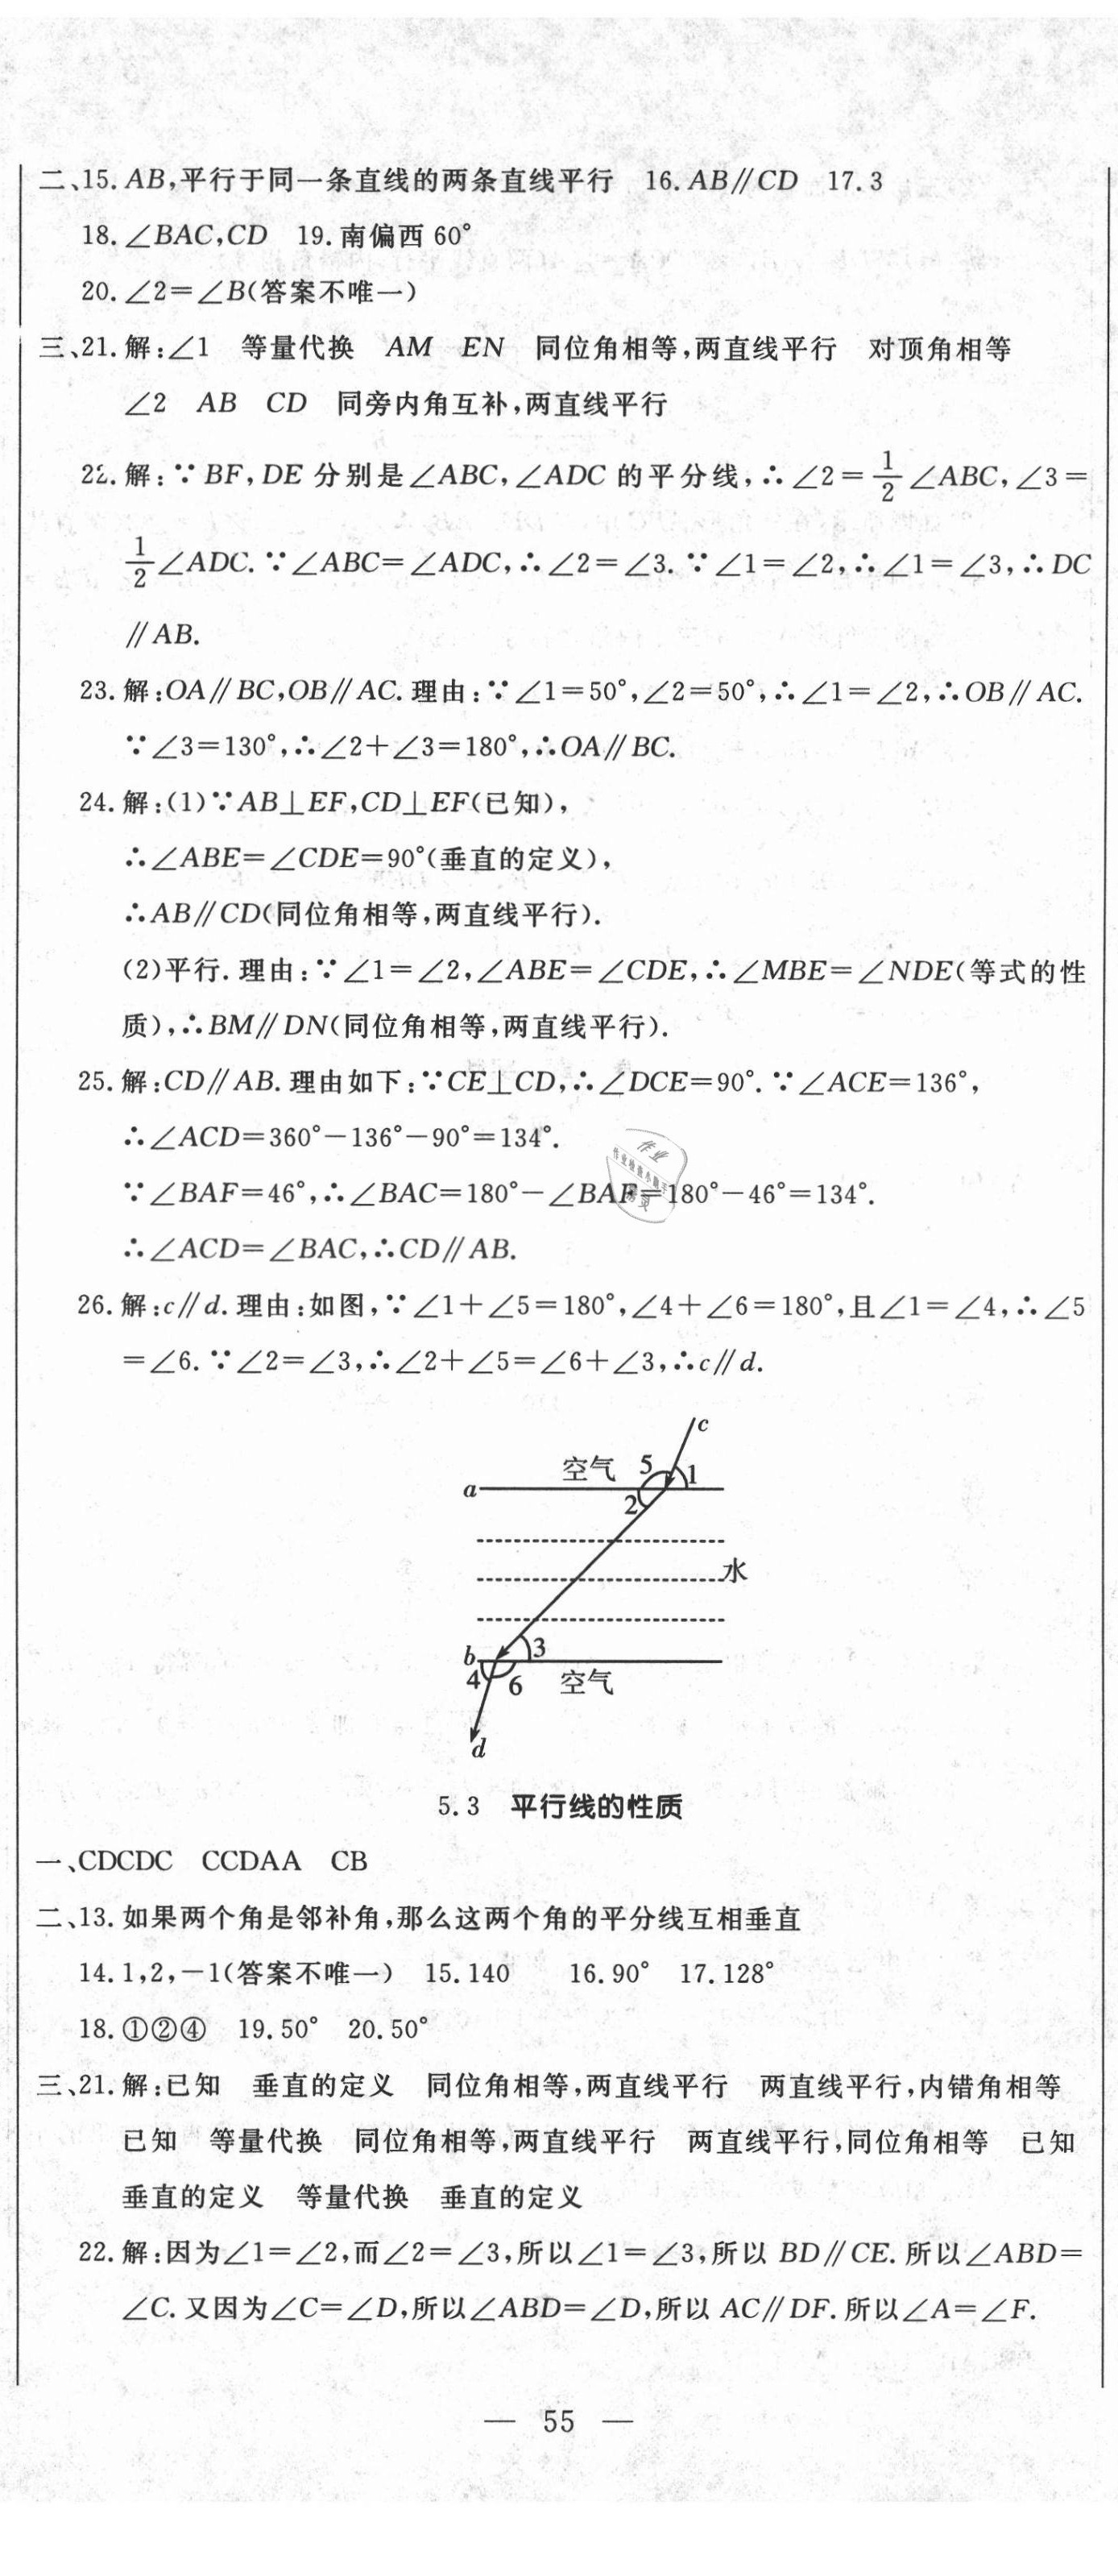 二、15. AB,平行于同一条直线的两条直线平行 16. AB∥CD 17. 3
18. ∠BAC,CD 19. 南偏西 60°
20. ∠2=∠B(答案不唯一)
三、21. 解:∠1 等量代换 AM EN 同位角相等,两直线平行 对顶角相等
∠2 AB CD 同旁内角互补,两直线平行
22. 解:∵BF,DE 分别是∠ABC,∠ADC 的平分线,∴∠2=1/2∠ABC,∠3=
1/2∠ADC. ∵∠ABC=∠ADC,∴∠2=∠3. ∵∠1=∠2,∴∠1=∠3,∴DC
∥AB.
23. 解:OA∥BC,OB∥AC. 理由:∵∠1=50°,∠2=50°,∴∠1=∠2,∴OB∥AC.
∵∠3=130°,∴∠2+∠3=180°,∴OA∥BC.
24. 解:(1)∵AB⊥EF,CD⊥EF(已知),
∴∠ABE=∠CDE=90°(垂直的定义),
∴AB∥CD(同位角相等,两直线平行).
(2)平行. 理由:∵∠1=∠2,∠ABE=∠CDE,∴∠MBE=∠NDE(等式的性
质),∴BM∥DN(同位角相等,两直线平行).
25. 解:CD∥AB. 理由如下:∵CE⊥CD,∴∠DCE=90°. ∵∠ACE=136°,
∴∠ACD=360°-136°-90°=134°.
∵∠BAF=46°,∴∠BAC=180°-∠BAF=180°-46°=134°.
∴∠ACD=∠BAC,∴CD∥AB.
26. 解:c∥d. 理由:如图,∵∠1+∠5=180°,∠4+∠6=180°,且∠1=∠4,∴∠5
=∠6. ∵∠2=∠3,∴∠2+∠5=∠6+∠3,∴c∥d.
c
空气 5 1
a
2
水
b 3
4 6 空气
d
5.3 平行线的性质
一、CDCDC CCDAA CB
二、13. 如果两个角是邻补角,那么这两个角的平分线互相垂直
14. 1,2,-1(答案不唯一) 15. 140 16. 90° 17. 128°
18. ①②④ 19. 50° 20. 50°
三、21. 解:已知 垂直的定义 同位角相等,两直线平行 两直线平行,内错角相等
已知 等量代换 同位角相等,两直线平行 两直线平行,同位角相等 已知
垂直的定义 等量代换 垂直的定义
22. 解:因为∠1=∠2,而∠2=∠3,所以∠1=∠3,所以 BD∥CE. 所以∠ABD=
∠C. 又因为∠C=∠D,所以∠ABD=∠D,所以 AC∥DF. 所以∠A=∠F.
— 55 —